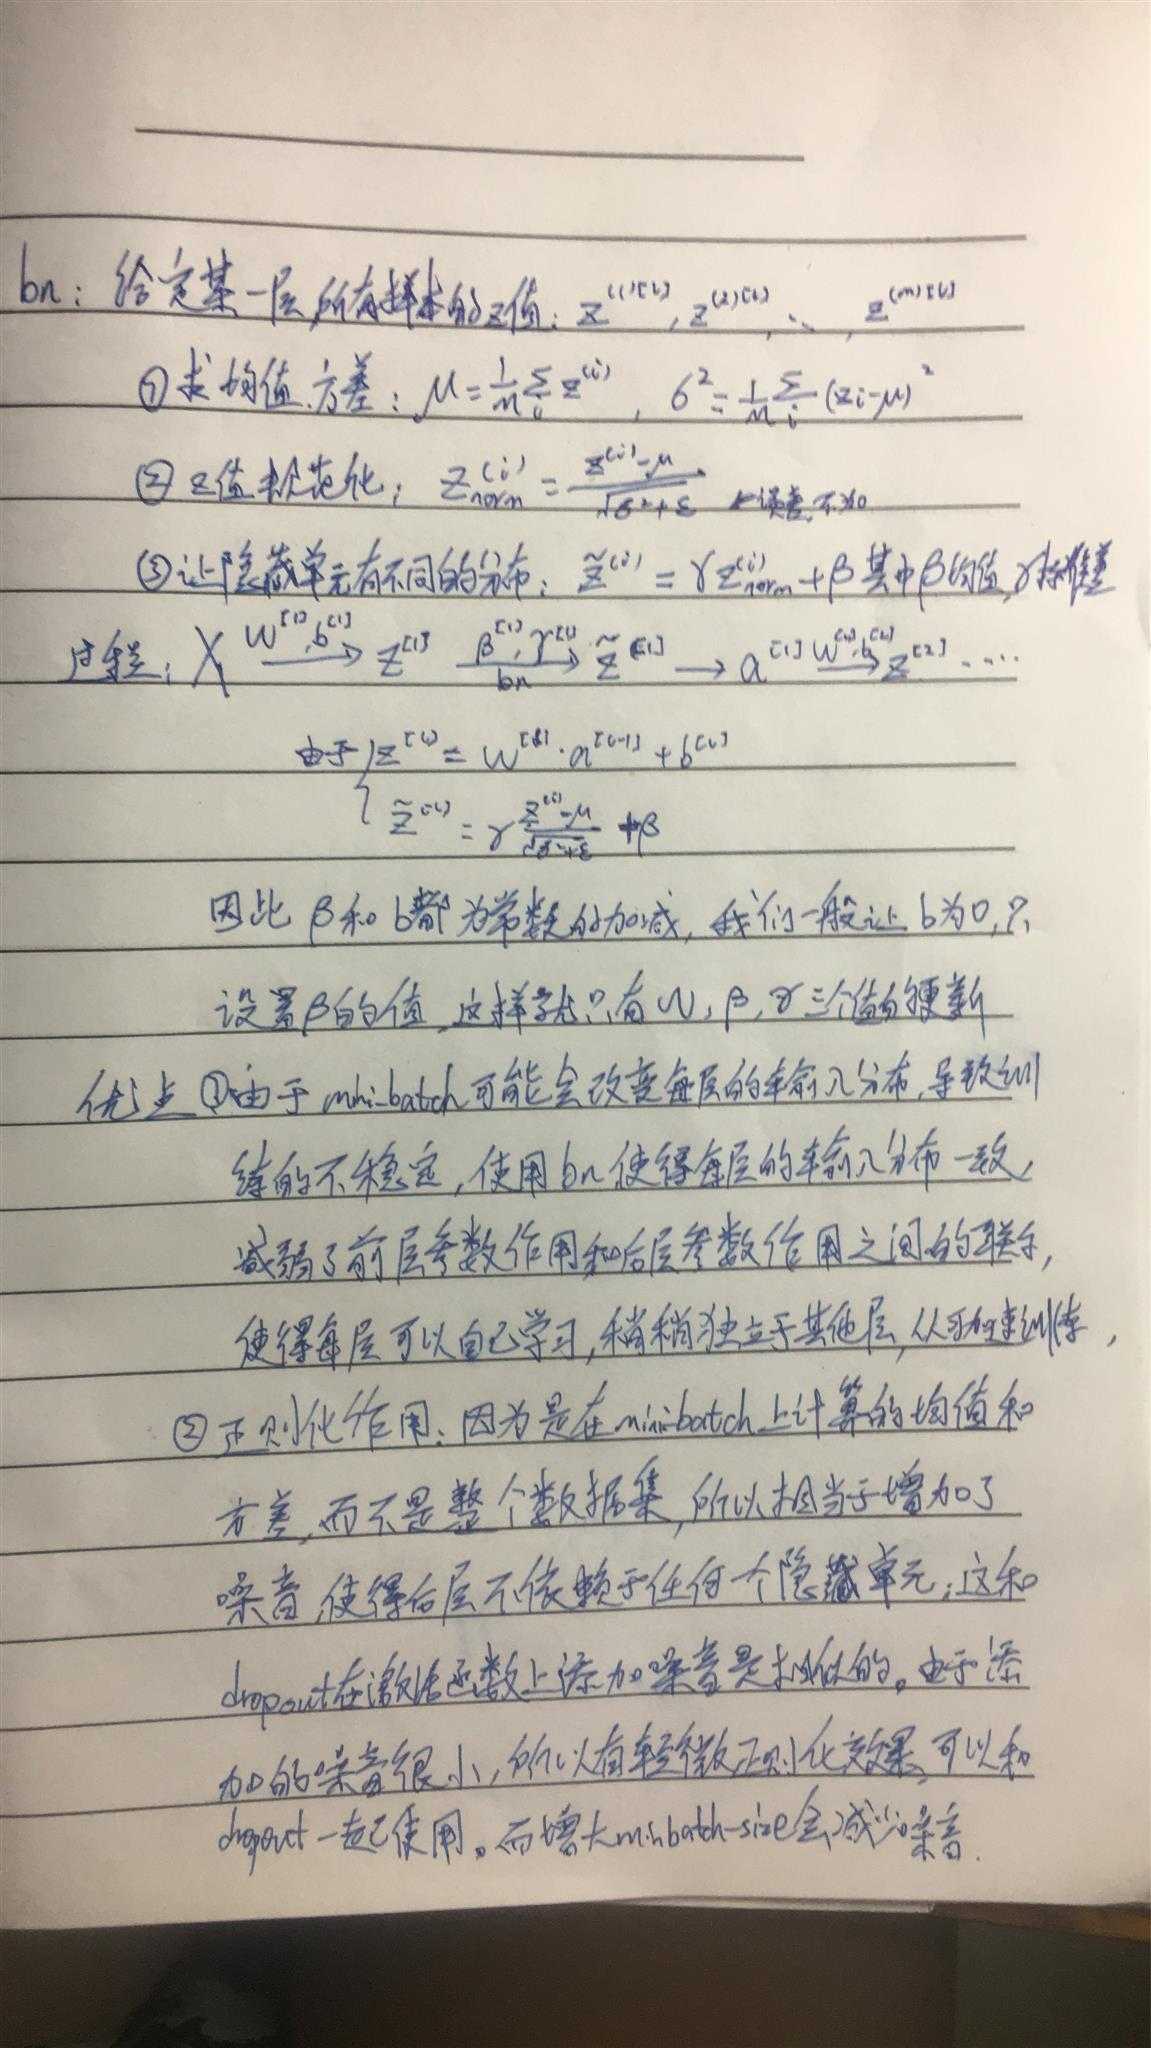 bn：给定某一层,所有样本的z值：z⁽¹⁾[l], z⁽²⁾[l], ..., z⁽ᵐ⁾[l]
①求均值.方差：μ=1/m Σᵢ z⁽ⁱ⁾，σ²=1/m Σᵢ (zi-μ)²
②z值规范化：z⁽ⁱ⁾norm = (z⁽ⁱ⁾-μ)/√(σ²+ε) ←误差,不为0
③让隐藏单元有不同的分布：z̃⁽ⁱ⁾ = γz⁽ⁱ⁾norm+β 其中β均值,γ标准差
过程：X —W[1],b[1]→ z[1] —β[1],γ[1] bn→ z̃[1] → a[1] —W[2],b[2]→ z[2] ....
由于 { z[l] = W[l]·a[l-1]+b[l]
z̃[l] = γ (z[l]-μ)/√(σ²+ε) +β
因此β和b都为常数的加减，我们一般让b为0,只
设置β的值,这样就只有W,β,γ三个值的更新
优点①由于mini-batch可能会改变每层的输入分布,导致训
练的不稳定,使用bn使得每层的输入分布一致,
减弱了前层参数作用和后层参数作用之间的联系,
使得每层可以自己学习,稍稍独立于其他层,从而加速训练,
②正则化作用：因为是在mini-batch上计算的均值和
方差,而不是整个数据集,所以相当于增加了
噪音,使得后层不依赖于任何一个隐藏单元；这和
dropout在激活函数上添加噪音是相似的。由于添
加的噪音很小,所以有轻微正则化效果,可以和
dropout一起使用。而增大minibatch-size会减少噪音.